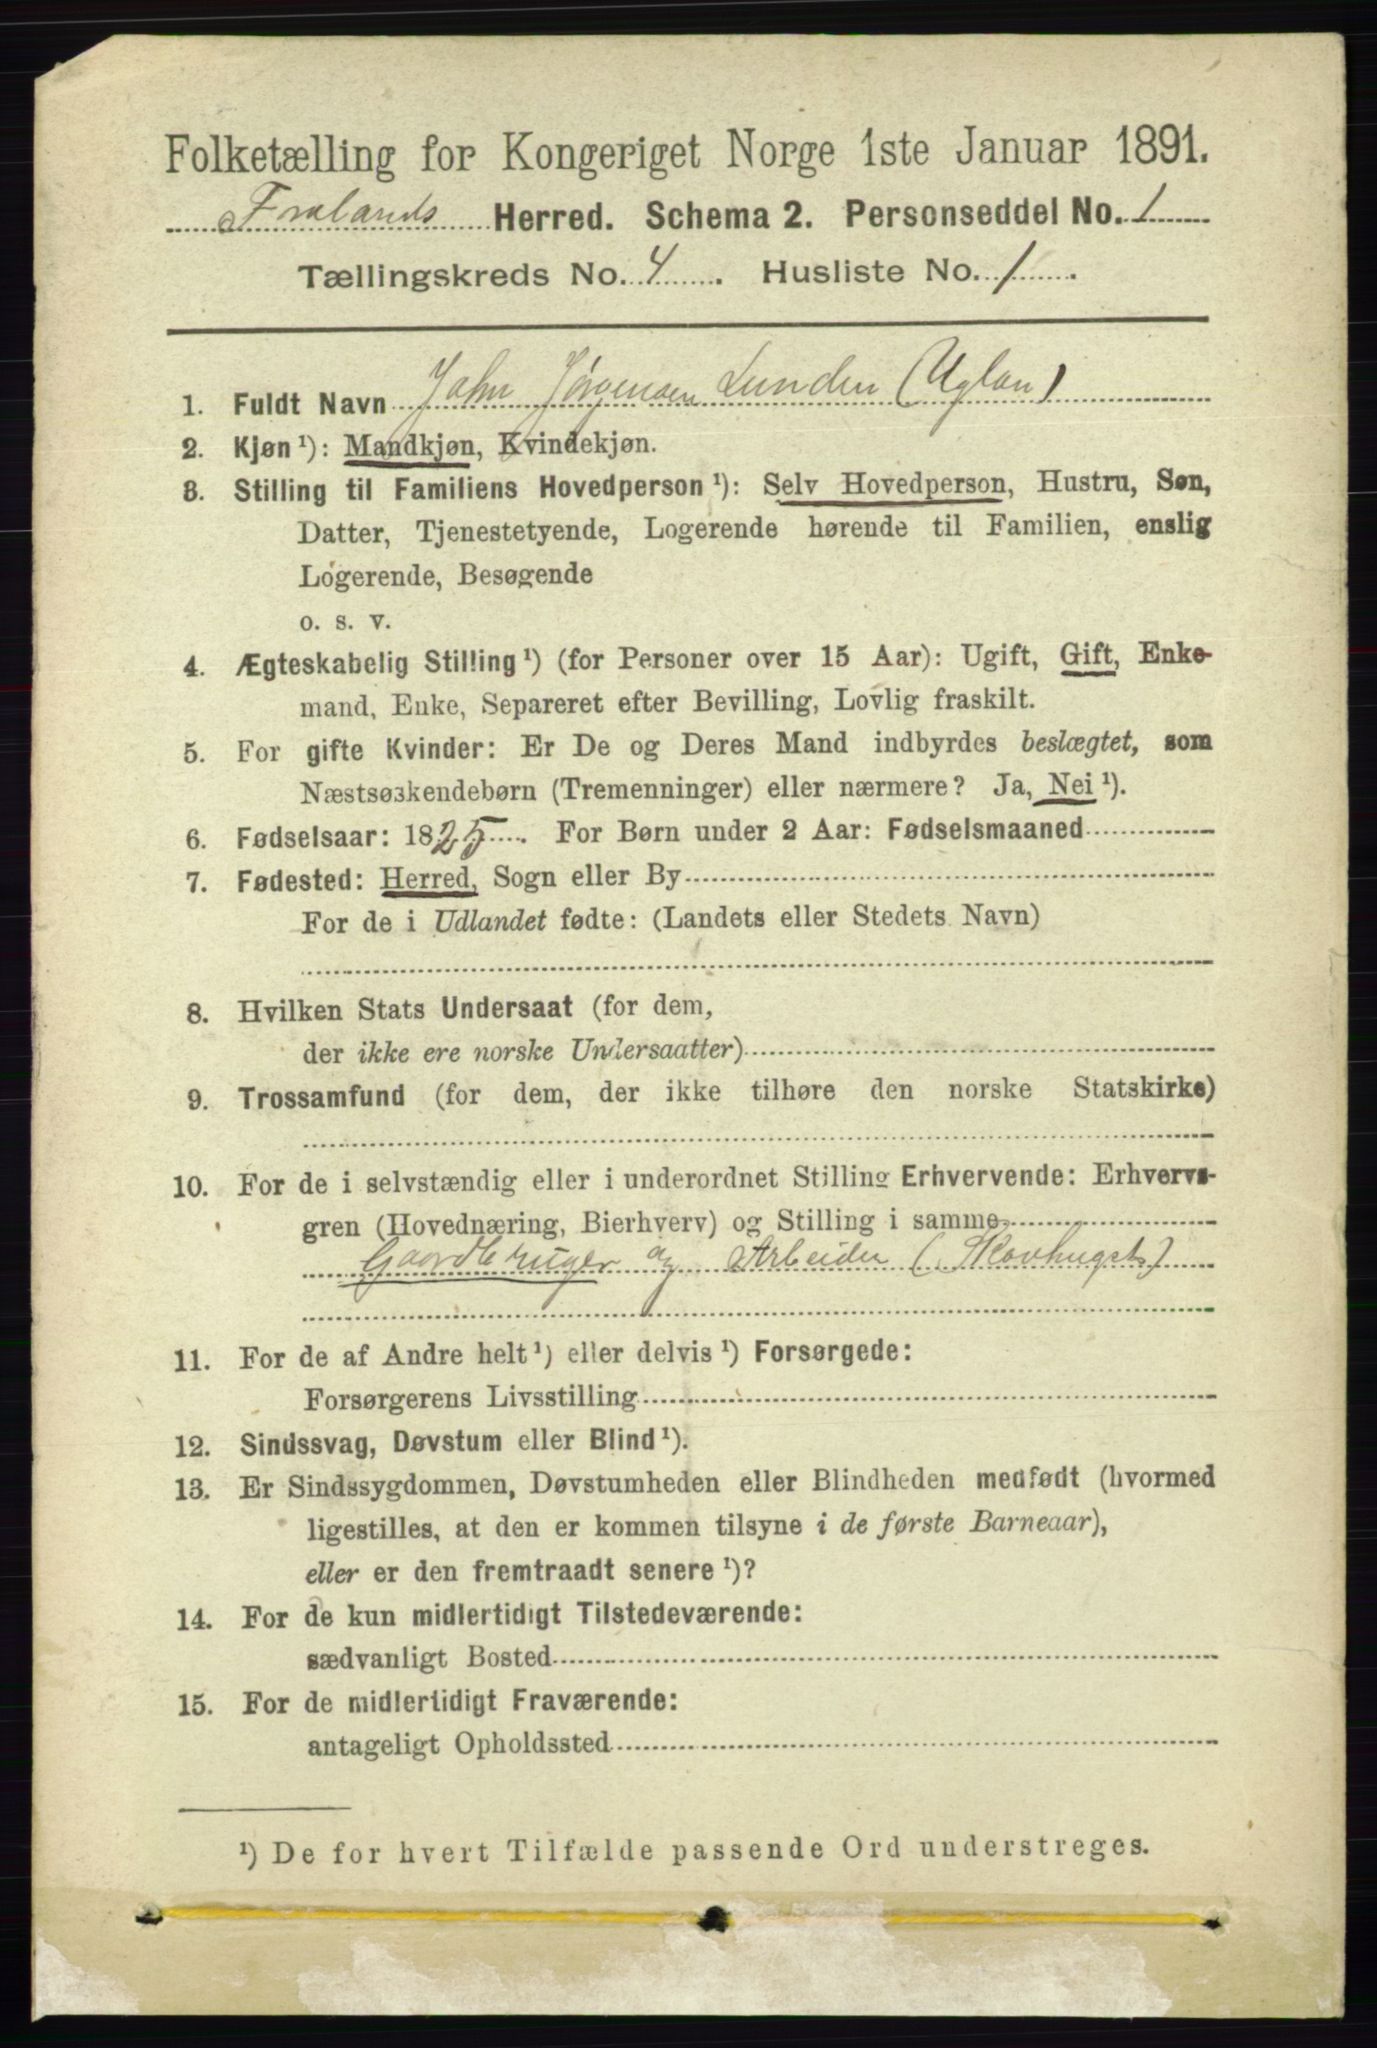 Folketælling for Kongeriget Norge 1ste Januar 1891.
Frolands Herred. Schema 2. Personseddel No. 1
Tællingskreds No. 4. Husliste No. 1.
1. Fuldt Navn John Jørgensen Lunden (Uglan)
2. Kjøn ¹): Mandkjøn, Kvindekjøn.
3. Stilling til Familiens Hovedperson ¹): Selv Hovedperson, Hustru, Søn,
Datter, Tjenestetyende, Logerende hørende til Familien, enslig
Logerende, Besøgende
o. s. v.
4. Ægteskabelig Stilling ¹) (for Personer over 15 Aar): Ugift, Gift, Enke-
mand, Enke, Separeret efter Bevilling, Lovlig fraskilt.
5. For gifte Kvinder: Er De og Deres Mand indbyrdes beslægtet, som
Næstsøskendebørn (Tremenninger) eller nærmere? Ja, Nei ¹).
6. Fødselsaar: 1825. For Børn under 2 Aar: Fødselsmaaned
7. Fødested: Herred, Sogn eller By
For de i Udlandet fødte: (Landets eller Stedets Navn)
8. Hvilken Stats Undersaat (for dem,
der ikke ere norske Undersaatter)
9. Trossamfund (for dem, der ikke tilhøre den norske Statskirke)
10. For de i selvstændig eller i underordnet Stilling Erhvervende: Erhvervs-
gren (Hovednæring, Bierhverv) og Stilling i samme
Gaardbruger og Arbeider (Skovhugst)
11. For de af Andre helt ¹) eller delvis ¹) Forsørgede:
Forsørgerens Livsstilling
12. Sindssvag, Døvstum eller Blind ¹).
13. Er Sindssygdommen, Døvstumheden eller Blindheden medfødt (hvormed
ligestilles, at den er kommen tilsyne i de første Barneaar),
eller er den fremtraadt senere ¹)?
14. For de kun midlertidigt Tilstedeværende:
sædvanligt Bosted
15. For de midlertidigt Fraværende:
antageligt Opholdssted
¹) De for hvert Tilfælde passende Ord understreges.